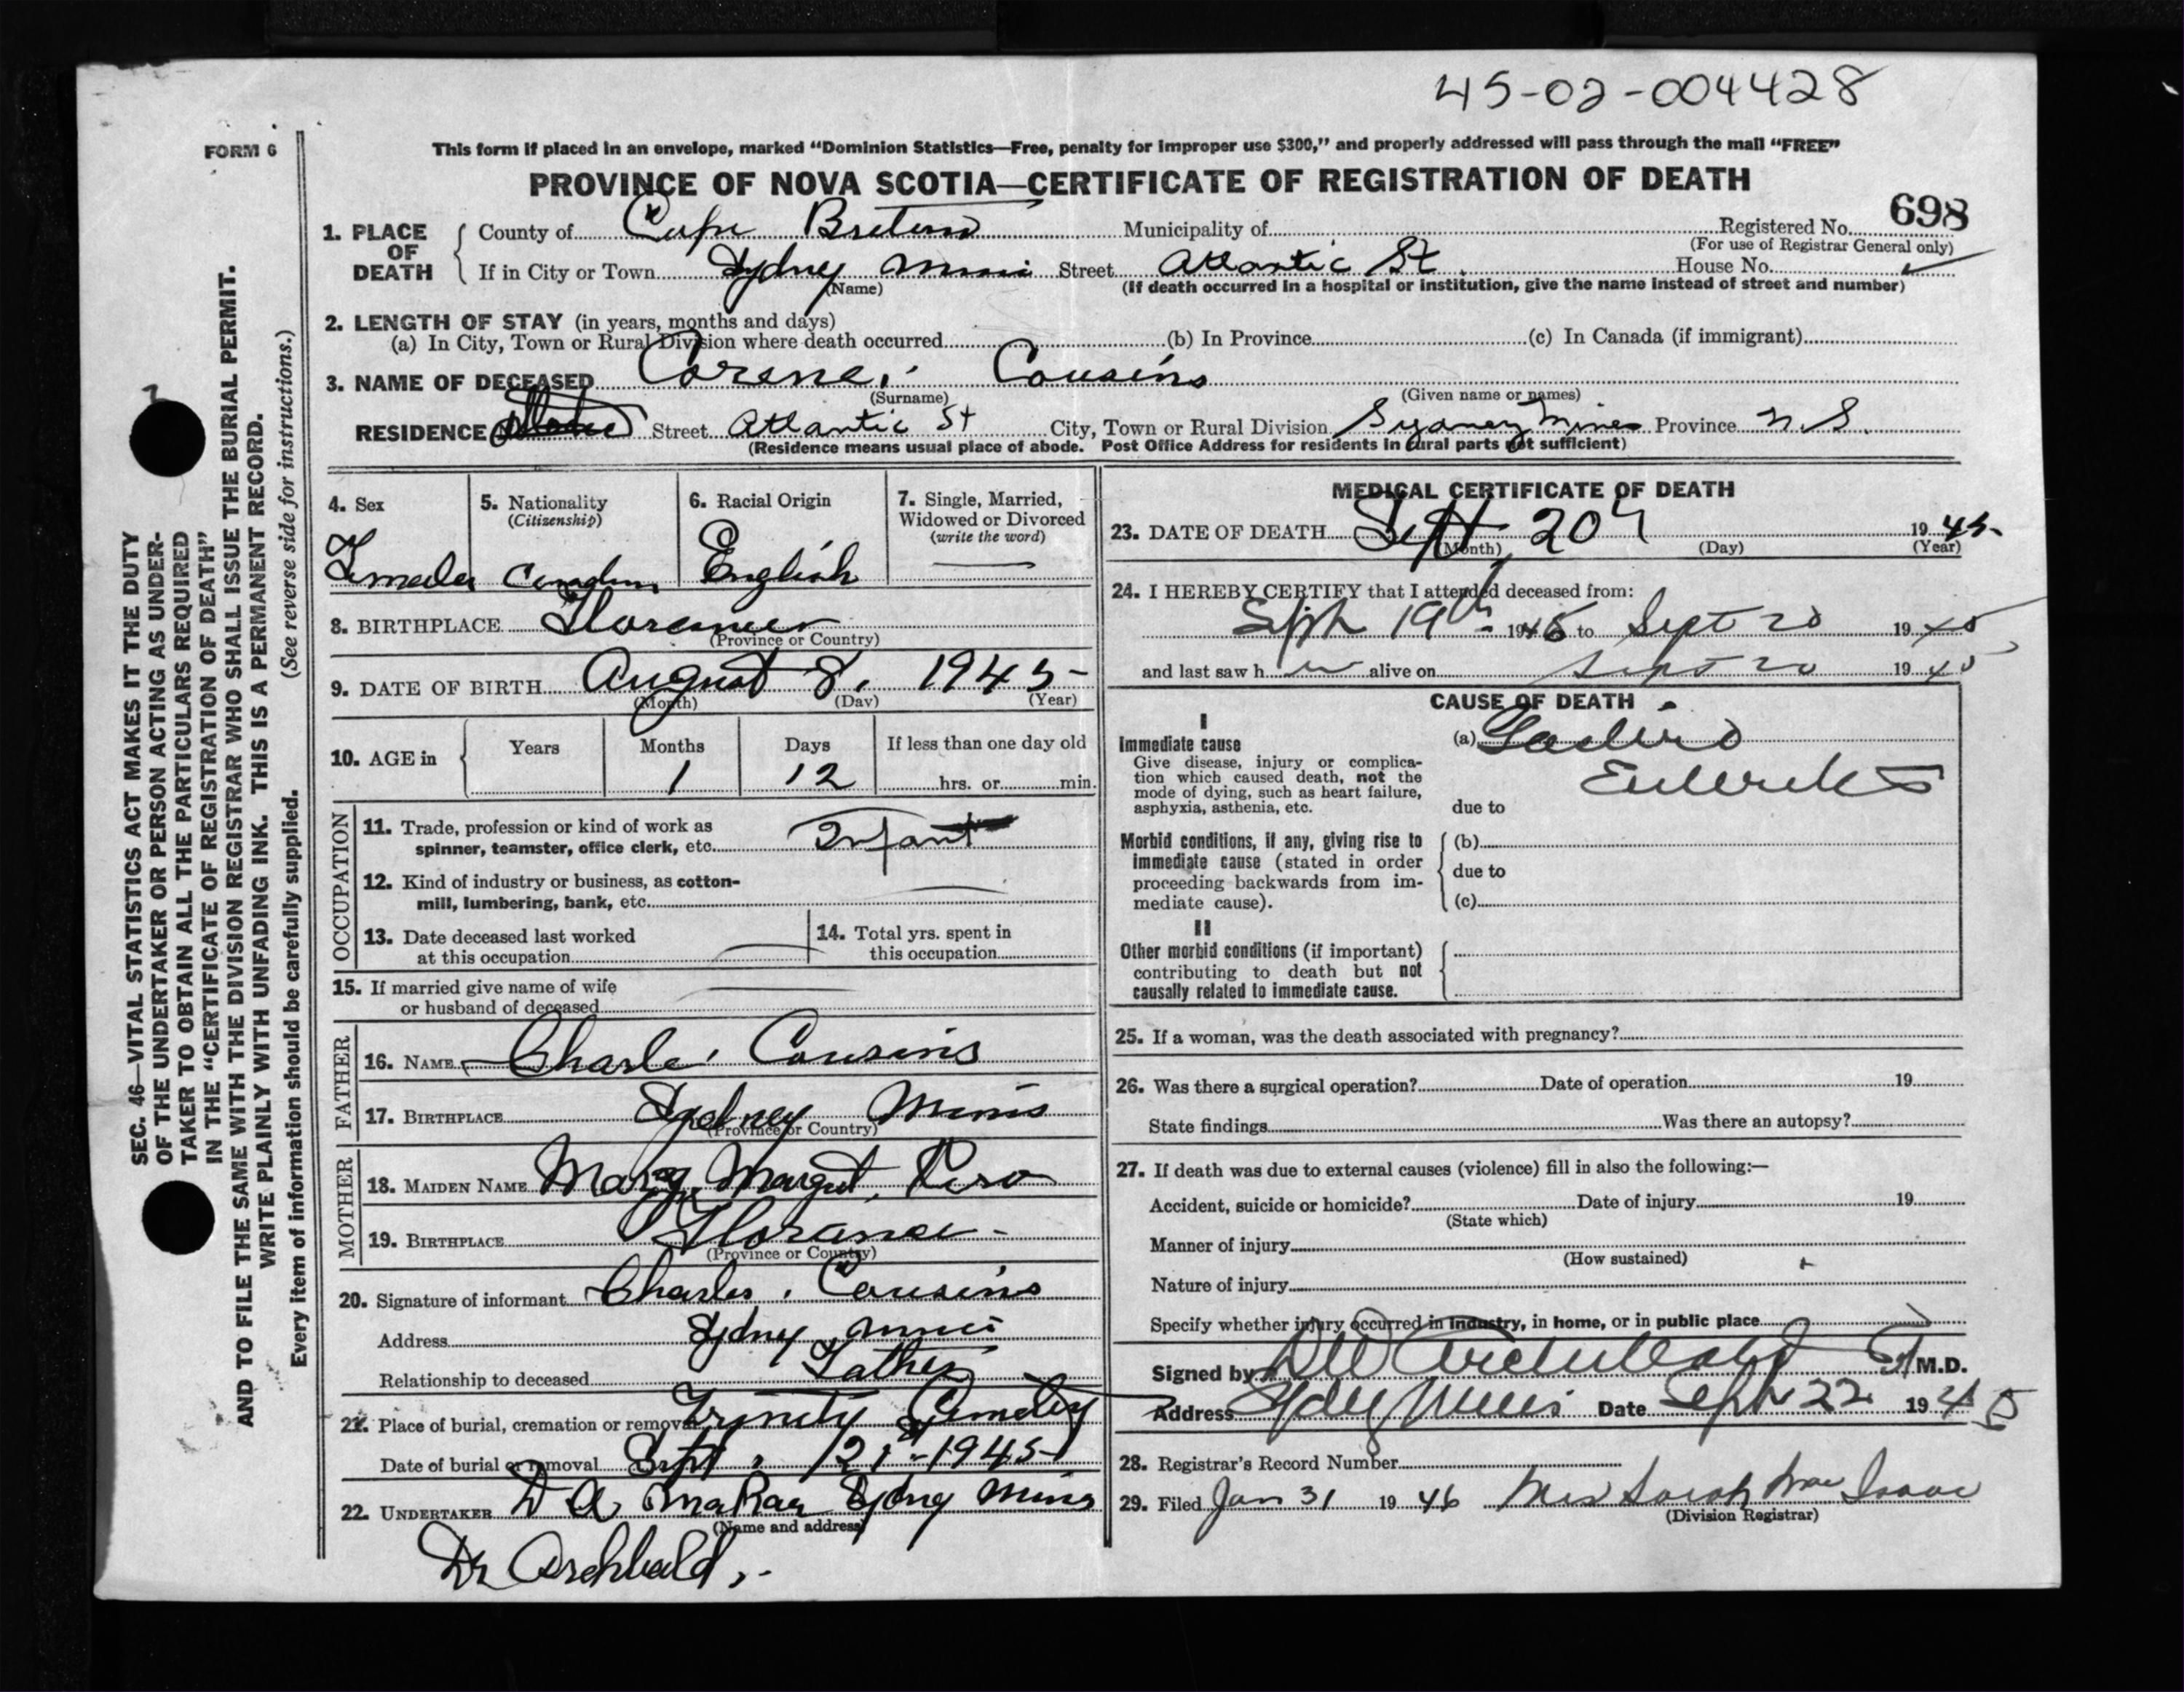 45-02-004428
FORM 6
This form if placed in an envelope, marked “Dominion Statistics—Free, penalty for improper use $300,” and properly addressed will pass through the mail “FREE”
PROVINCE OF NOVA SCOTIA—CERTIFICATE OF REGISTRATION OF DEATH
698
1. PLACE OF DEATH
County of Cape Breton Municipality of Registered No.
(For use of Registrar General only)
If in City or Town Sydney Mines Street Atlantic St. House No.
(Name) (If death occurred in a hospital or institution, give the name instead of street and number)
2. LENGTH OF STAY (in years, months and days)
(a) In City, Town or Rural Division where death occurred (b) In Province (c) In Canada (if immigrant)
3. NAME OF DECEASED Corene, Cousins
(Surname) (Given name or names)
RESIDENCE Street Atlantic St City, Town or Rural Division Sydney Mines Province N.S.
(Residence means usual place of abode. Post Office Address for residents in rural parts not sufficient)
4. Sex
Female
5. Nationality
(Citizenship)
6. Racial Origin
English
7. Single, Married,
Widowed or Divorced
(write the word)
8. BIRTHPLACE Florence
(Province or Country)
9. DATE OF BIRTH August 8, 1945
(Month) (Day) (Year)
10. AGE in
Years Months Days If less than one day old
1 12 hrs. or min.
OCCUPATION
11. Trade, profession or kind of work as
spinner, teamster, office clerk, etc. Infant
12. Kind of industry or business, as cotton-
mill, lumbering, bank, etc.
13. Date deceased last worked
at this occupation
14. Total yrs. spent in
this occupation
15. If married give name of wife
or husband of deceased
FATHER
16. NAME Charles Cousins
17. BIRTHPLACE Sydney Mines
(Province or Country)
MOTHER
18. MAIDEN NAME Mary Margret
19. BIRTHPLACE Florance
(Province or Country)
20. Signature of informant Charles Cousins
Address Sydney Mines
Relationship to deceased Father
21. Place of burial, cremation or removal Trynety Cemetery
Date of burial or removal Sept. 21st 1945
22. UNDERTAKER D A Sydney Mines
(Name and address)
Dr Archbald
MEDICAL CERTIFICATE OF DEATH
23. DATE OF DEATH Sept 20 1945
(Month) (Day) (Year)
24. I HEREBY CERTIFY that I attended deceased from:
Sept 19th 1945 to Sept 20 1945
and last saw h er alive on Sept 20 1945
CAUSE OF DEATH
I
Immediate cause
Give disease, injury or complica-
tion which caused death, not the
mode of dying, such as heart failure,
asphyxia, asthenia, etc.
(a) Gastro
Enteritis
due to
Morbid conditions, if any, giving rise to
immediate cause (stated in order
proceeding backwards from im-
mediate cause).
(b)
due to
(c)
II
Other morbid conditions (if important)
contributing to death but not
causally related to immediate cause.
25. If a woman, was the death associated with pregnancy?
26. Was there a surgical operation? Date of operation 19
State findings Was there an autopsy?
27. If death was due to external causes (violence) fill in also the following:—
Accident, suicide or homicide? Date of injury 19
(State which)
Manner of injury
(How sustained)
Nature of injury
Specify whether injury occurred in industry, in home, or in public place
Signed by Archibald M.D.
Address Sydney Mines Date Sept 22 1945
28. Registrar's Record Number
29. Filed Jan 31 1946 Mrs Sarah Mac Isaac
(Division Registrar)
SEC. 46—VITAL STATISTICS ACT MAKES IT THE DUTY
OF THE UNDERTAKER OR PERSON ACTING AS UNDER-
TAKER TO OBTAIN ALL THE PARTICULARS REQUIRED
IN THE “CERTIFICATE OF REGISTRATION OF DEATH”
AND TO FILE THE SAME WITH THE DIVISION REGISTRAR WHO SHALL ISSUE THE BURIAL PERMIT.
WRITE PLAINLY WITH UNFADING INK. THIS IS A PERMANENT RECORD.
Every item of information should be carefully supplied. (See reverse side for instructions.)